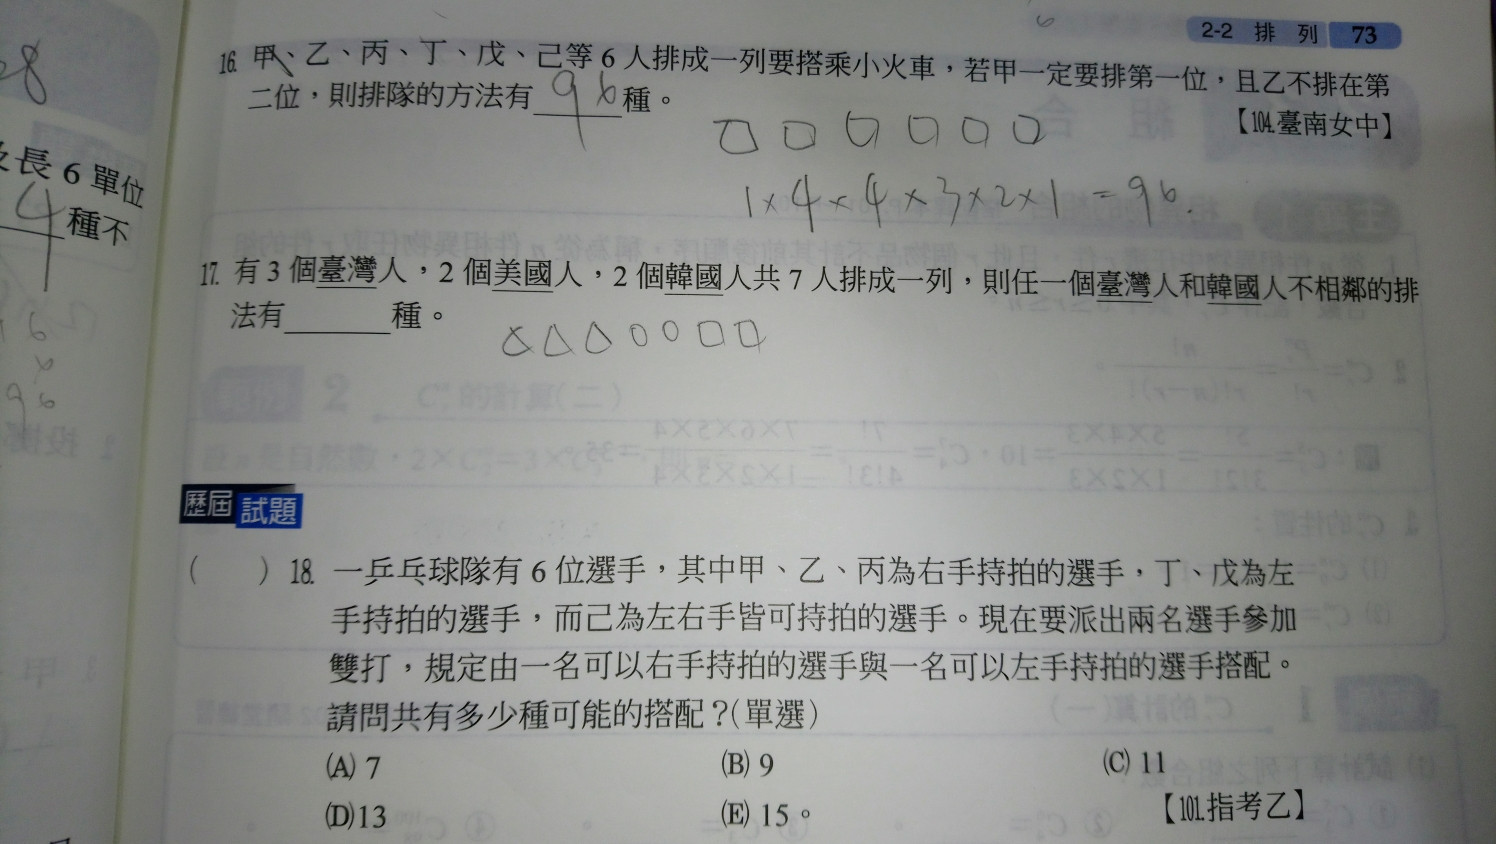 2-2 排列 73
16. 甲、乙、丙、丁、戊、己等 6 人排成一列要搭乘小火車，若甲一定要排第一位，且乙不排在第
二位，則排隊的方法有 96 種。
【104.臺南女中】
1×4×4×3×2×1=96.
17. 有 3 個臺灣人，2 個美國人，2 個韓國人共 7 人排成一列，則任一個臺灣人和韓國人不相鄰的排
法有______種。
歷屆試題
(  ) 18. 一乒乓球隊有 6 位選手，其中甲、乙、丙為右手持拍的選手，丁、戊為左
手持拍的選手，而己為左右手皆可持拍的選手。現在要派出兩名選手參加
雙打，規定由一名可以右手持拍的選手與一名可以左手持拍的選手搭配。
請問共有多少種可能的搭配？(單選)
(A) 7 (B) 9 (C) 11
(D)13 (E) 15。 【101.指考乙】
長 6 單位
4 種不